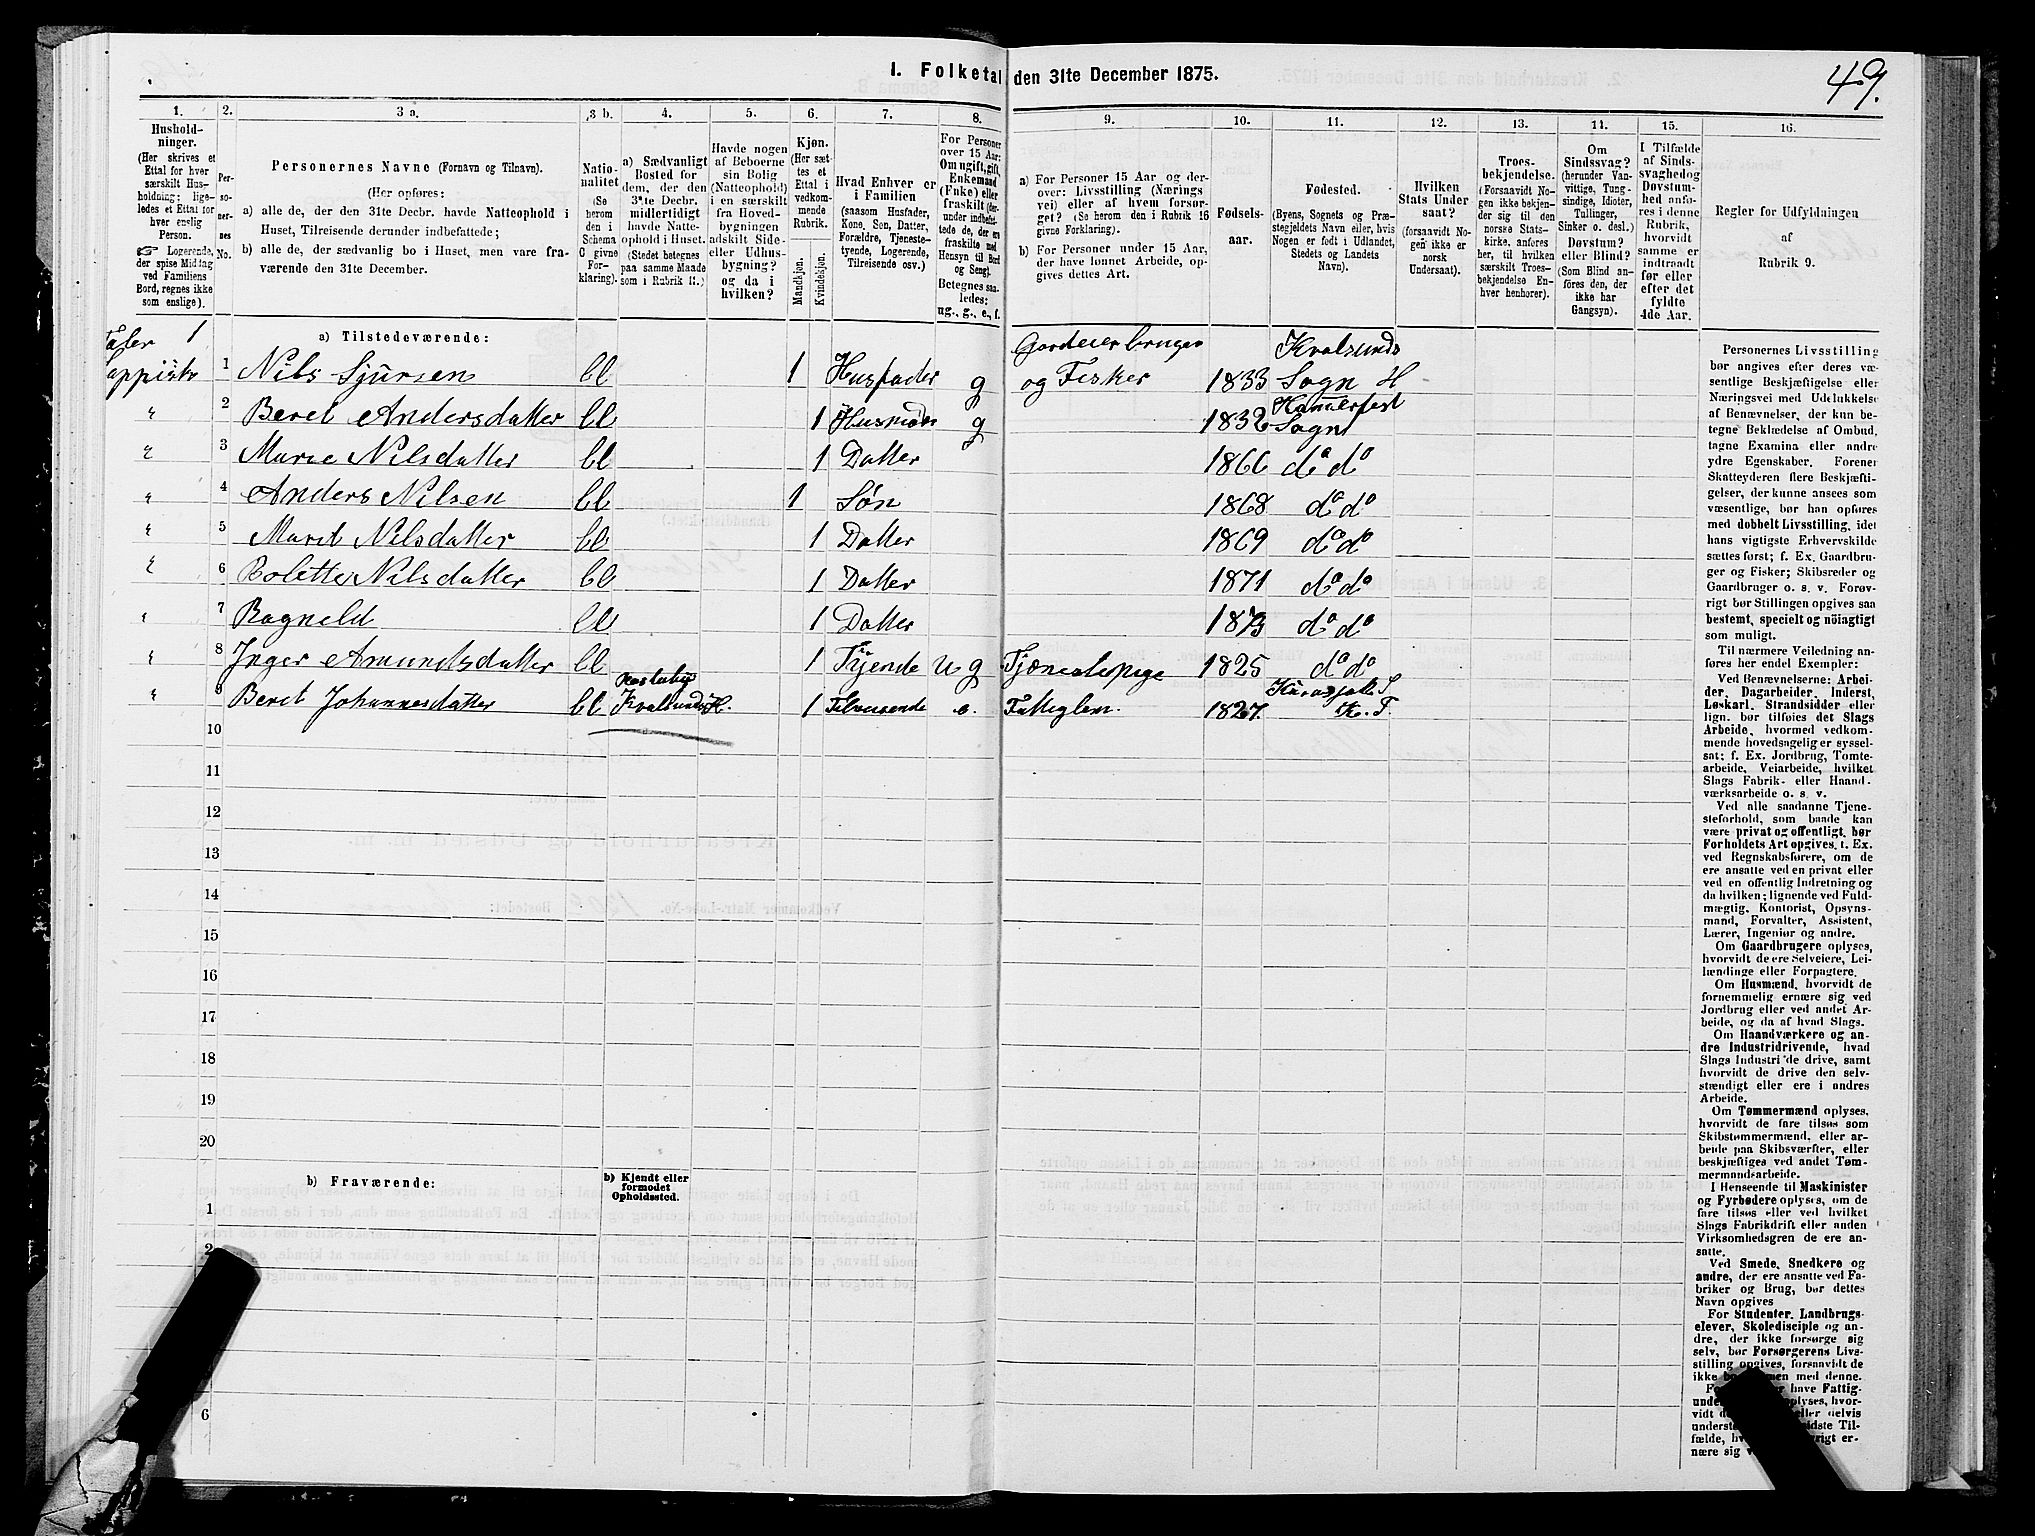 1. Folketal den 31te December 1875.
49.
1.
Hushold-
ninger.
(Her skrives et
Ettal for hver
særskilt Hus-
holdning; lige-
ledes et Ettal for
hver enslig
Person.
☞ Logerende,
der spise Middag
ved Familiens
Bord, regnes ikke
som enslige).
2.
Per-
soner-
nes
No.
3 a.
Personernes Navne (Fornavn og Tilnavn).
(Her opføres:
a) alle de, der den 31te Decbr. havde Natteophold i
Huset, Tilreisende derunder indbefattede;
b) alle de, der sædvanlig bo i Huset, men vare fra-
værende den 31te December.
3 b.
Natio-
nalitet
(Se
herom
den i
Schema
C givne
For-
klaring).
4.
a) Sædvanligt
Bosted for
dem, der den
31te Decbr.
midlertidigt
havde Natte-
ophold i Huset.
(Stedet betegnes
paa samme Maade
som i Rubrik 11.)
5.
Havde nogen
af Beboerne
sin Bolig
(Natteophold)
i en særskilt
fra Hoved-
bygningen
adskilt Side-
eller Udhus-
bygning?
og da i
hvilken?
6.
Kjøn.
(Her sæt-
tes et
Ettal i
vedkom-
mende
Rubrik.
Mandkjøn.
Kvindekjøn.
7.
Hvad Enhver er
i Familien
(saasom Husfader,
Kone, Søn, Datter,
Forældre, Tjeneste-
tyende, Logerende,
Tilreisende osv.)
8.
For Personer
over 15 Aar:
Om ugift, gift,
Enkemand
(Enke) eller
fraskilt (der-
under indbefat-
tede de, der ere
fraskilte med
Hensyn til Bord
og Seng).
Betegnes saa-
ledes:
ug., g., e., f.
9.
a) For Personer 15 Aar og der-
over: Livsstilling (Nærings-
vei) eller af hvem forsør-
get? (Se herom den i Rubrik 16
givne Forklaring).
b) For Personer under 15 Aar,
der have lønnet Arbeide, op-
gives dettes Art.
10.
Fødsels-
aar.
11.
Fødested.
(Byens, Sognets og Præ-
stegjeldets Navn eller, hvis
Nogen er født i Udlandet,
Stedets og Landets
Navn).
12.
Hvilken
Stats Under
saat?
(forsaavidt No-
gen ikke er
norsk
Undersaat).
13.
Troes-
bekjendelse.
(Forsaavidt No-
gen ikke bekjen-
der sig til den
norske Stats-
kirke, anføres
her, til hvilken
særskilt Troes-
bekjendelse En-
hver henhører).
14.
Om
Sindssvag?
(herunder Van-
vittige, Tung-
sindige, Idioter,
Tullinger,
Sinker o. desl.)
Døvstum?
eller Blind?
(Som Blind an-
føres den, der
ikke har
Gangsyn).
15.
I Tilfælde
af Sinds-
svaghed og
Døvstum-
hed anfø-
res i denne
Rubrik,
hvorvidt
samme er
indtraadt
før eller
efter det
fyldte
4de Aar.
16.
Regler for Udfyldningen
af
Rubrik 9.
a) Tilstedeværende:
1 Gardeierbruger Kvalsunds
1 Nils Sjursen bl 1 Husfader g og Fisker 1833 Sogn H
Hamerfest
„ 2 Beret Andersdatter bl 1 Husmoder g 1832 Sogn
„ 3 Marie Nilsdatter bl 1 Datter 1866 do do
„ 4 Anders Nilsen bl 1 Søn 1868 do do
„ 5 Marit Nilsdatter bl 1 Datter 1869 do do
„ 6 Bolette Nilsdatter bl 1 Datter 1871 do do
„ 7 Ragneld bl 1 Datter 1873 do do
„ 8 Inger Amundsdatter bl 1 Tjende ug Tjenestepige 1825 do do
„ 9 Beret Johannesdatter bl Kvalsund H. 1 Tilreisende e. Fattiglem 1827. K. T.
10
11
12
13
14
15
16
17
18
19
20
b) Fraværende:
b) Kjendt eller
formodet
Opholdssted.
1
2
6
Personernes Livsstilling
bør angives efter deres væ-
sentlige Beskjæftigelse eller
Næringsvei med Udelukkelse
af Benævnelser, der kun be-
tegne Beklædelse af Ombud,
tagne Examina eller andre
ydre Egenskaber. Forener
Skatteyderen flere Beskjæfti-
gelser, der kunne ansees som
væsentlige, bør han opføres
med dobbelt Livsstilling, idet
hans vigtigste Erhvervskilde
sættes først; f. Ex. Gaardbru-
ger og Fisker; Skibsreder og
Gaardbruger o. s. v. Forøv-
rigt bør Stillingen opgives saa
bestemt, specielt og nøiagtigt
som muligt.
Til nærmere Veiledning an-
føres her endel Exempler:
Ved Benævnelserne: Arbei-
der, Dagarbeider, Inderst,
Løskarl, Strandsidder eller
lign. bør tilføies det Slags
Arbeide, hvormed vedkom-
mende hovedsagelig er syssel-
sat; f. Ex. Jordbrug, Tomte-
arbeide, Veiarbeide, hvilket
Slags Fabrik- eller Haand-
værksarbeide o. s. v.
Ved alle saadanne Tjene-
steforhold, som baade kan
være privat og offentligt, bør
Forholdets Art opgives, f. Ex.
ved Regnskabsførere, om de
ere ansatte ved en privat eller
ved en offentlig Indretning og
da hvilken; lignende ved Fuld-
mægtig, Kontorist, Opsyns-
mand, Forvalter, Assistent,
Lærer, Ingeniør og andre.
Om Gaardbrugere oplyses,
hvorvidt de ere Selveiere, Lei-
lændinge eller Forpagtere.
Om Husmænd, hvorvidt de
fornemmelig ernære sig ved
Jordbrug eller ved andet Ar-
beide, og da af hvad Slags.
Om Haandværkere og an-
dre Industridrivende, hvad
Slags Industri de drive, samt
hvorvidt de drive den selv-
stændigt eller ere i andres
Arbeide.
Om Tømmermænd oplyses,
hvorvidt de fare tilsøs som
Skibstømmermænd, eller ar-
beide paa Skibsværfter, eller
beskjæftiges ved andet Tøm-
mermandsarbeide.
I Henseende til Maskinister
og Fyrbødere oplyses, om de
fare tilsøs eller ved hvilket
Slags Fabrikdrift eller anden
Virksomhedsgren de ere an-
satte.
Ved Smede, Snedkere og
andre, der ere ansatte ved Fa-
briker og Brug, bør dettes
Navn opgives
For Studenter, Landbrugs-
elever, Skoledisciple og an-
dre, der ikke forsørge sig
selv, bør Forsørgerens Livs-
stilling opgives, forsaavidt de
ikke bo sammen med denne.